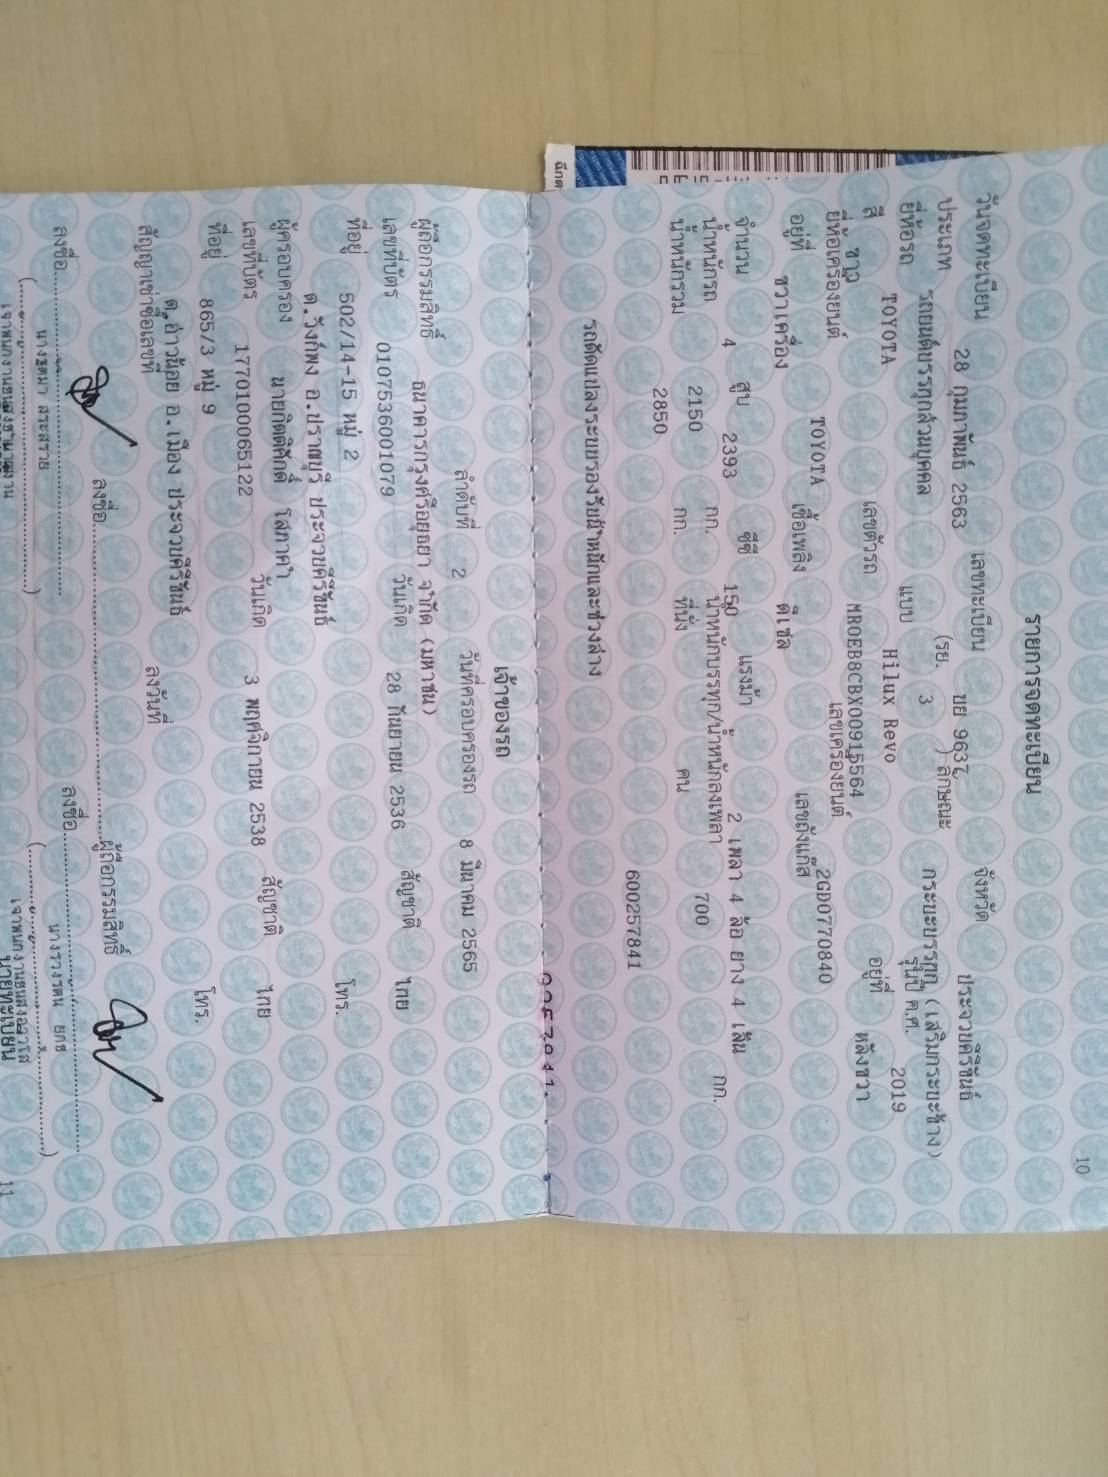 10
รายการจดทะเบียน
วันจดทะเบียน 28 กุมภาพันธ์ 2563 เลขทะเบียน ขย 9637 จังหวัด ประจวบคีรีขันธ์
ประเภท รถยนต์บรรทุกส่วนบุคคล (รย. 3 ) ลักษณะ กระบะบรรทุก (เสริมกระบะข้าง)
ยี่ห้อรถ TOYOTA แบบ Hilux Revo รุ่นปี ค.ศ. 2019
สี ขาว เลขตัวรถ อยู่ที่ หลังขวา
ยี่ห้อเครื่องยนต์ TOYOTA เลขเครื่องยนต์ 2GD0770840
อยู่ที่ ขวาเครื่อง เชื้อเพลิง ดีเซล เลขถังแก๊ส
จำนวน 4 สูบ 2393 ซีซี 150 แรงม้า 2 เพลา 4 ล้อ ยาง 4 เส้น
น้ำหนักรถ 2150 กก. น้ำหนักบรรทุก/น้ำหนักลงเพลา 700 กก.
น้ำหนักรวม 2850 กก. ที่นั่ง คน
600257841
รถดัดแปลงระบบรองรับน้ำหนักและช่วงล่าง
เจ้าของรถ
ลำดับที่ 2 วันที่ครอบครองรถ 8 มีนาคม 2565
ผู้ถือกรรมสิทธิ์ ธนาคารกรุงศรีอยุธยา จำกัด (มหาชน)
เลขที่บัตร 0107536001079 วันเกิด 28 กันยายน 2536 สัญชาติ ไทย
ที่อยู่ 502/14-15 หมู่ 2
ต.วังก์พง อ.ปราณบุรี ประจวบคีรีขันธ์ โทร.
ผู้ครอบครอง นายกิตติศักดิ์ โสภาคำ
เลขที่บัตร 1770100065122 วันเกิด 3 พฤศจิกายน 2538 สัญชาติ ไทย
ที่อยู่ 865/3 หมู่ 9
ต.อ่าวน้อย อ.เมือง ประจวบคีรีขันธ์ โทร.
สัญญาเช่าซื้อเลขที่ ลงวันที่
ลงชื่อ ผู้ถือกรรมสิทธิ์
ลงชื่อ ลงชื่อ
นายทะเบียน
11